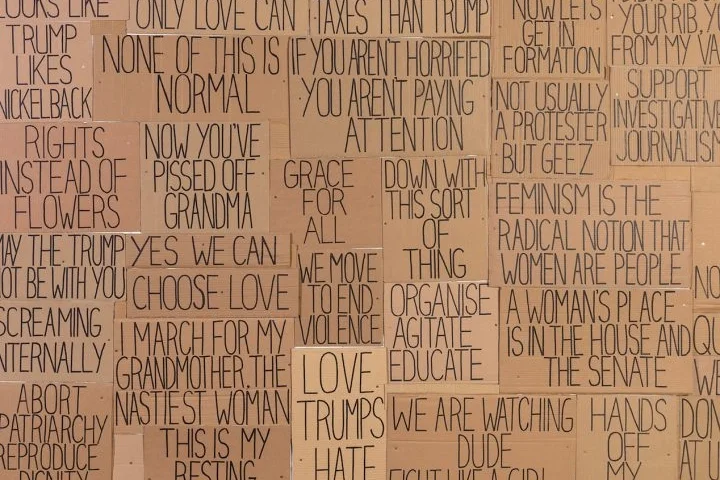 LOOKS LIKE
ONLY LOVE CAN
TAXES THAN TRUMP
NOW LET'S
GET IN
FORMATION
YOUR RIB, Y
FROM MY VA
TRUMP
LIKES
NICKELBACK
NONE OF THIS IS
NORMAL
IF YOU AREN'T HORRIFIED
YOU AREN'T PAYING
ATTENTION
NOT USUALLY
A PROTESTER
BUT GEEZ
SUPPORT
INVESTIGATIVE
JOURNALISM
RIGHTS
INSTEAD OF
FLOWERS
NOW YOU'VE
PISSED OFF
GRANDMA
GRACE
FOR
ALL
DOWN WITH
THIS SORT
OF
THING
FEMINISM IS THE
RADICAL NOTION THAT
WOMEN ARE PEOPLE
MAY THE TRUMP
NOT BE WITH YOU
YES WE CAN
CHOOSE LOVE
WE MOVE
TO END
VIOLENCE
ORGANISE
AGITATE
EDUCATE
A WOMAN'S PLACE
IS IN THE HOUSE AND
THE SENATE
NO
QU
SCREAMING
INTERNALLY
I MARCH FOR MY
GRANDMOTHER. THE
NASTIEST WOMAN
LOVE
TRUMPS
HATE
WE
ABORT
PATRIARCHY
REPRODUCE
DIGNITY
THIS IS MY
RESTING
WE ARE WATCHING
DUDE
FIGHT LIKE A GIRL
HANDS
OFF
MY
DON
AT U